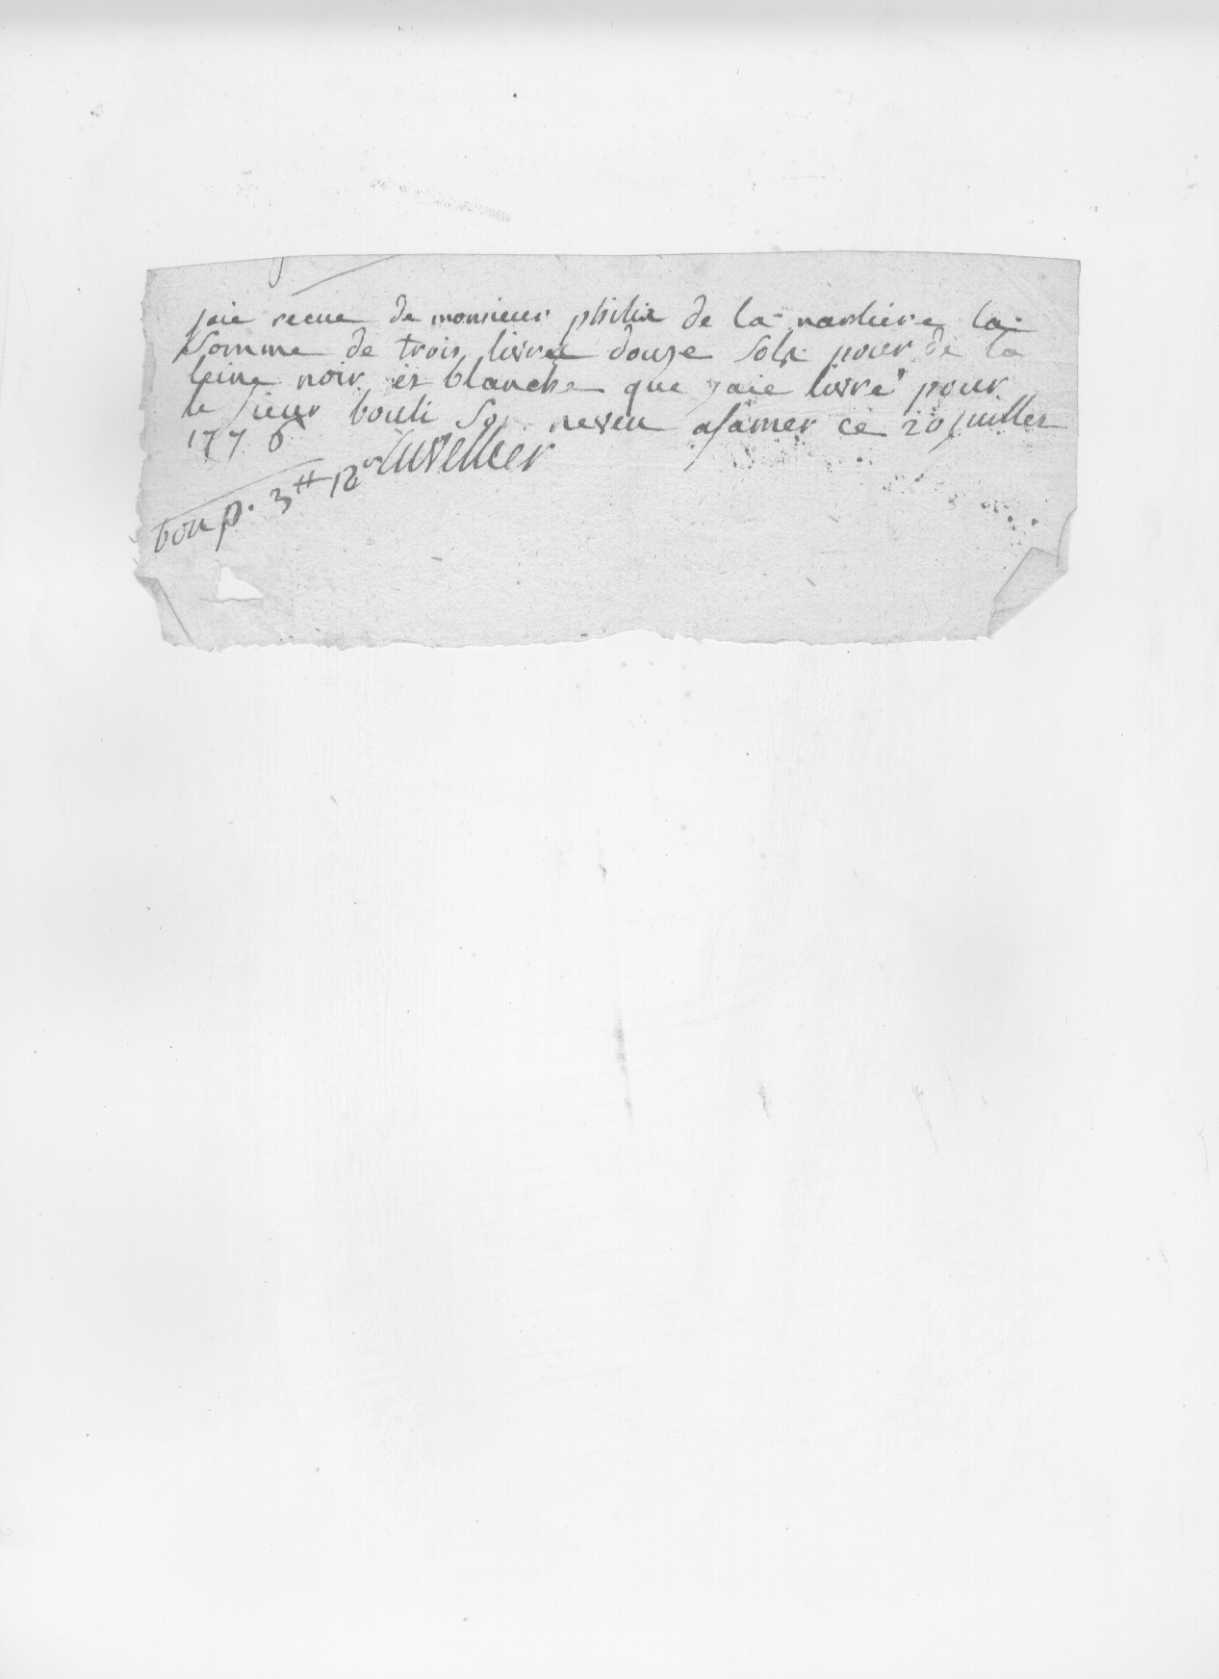 jaie recue de monsieur philix de la nardiere la
somme de trois livre douze sols pour de la
leine noir et blanche que jaie livré pour
le sieur bouli son neveu a samer ce 20 juillet
1776
bon p. 3tt 12s